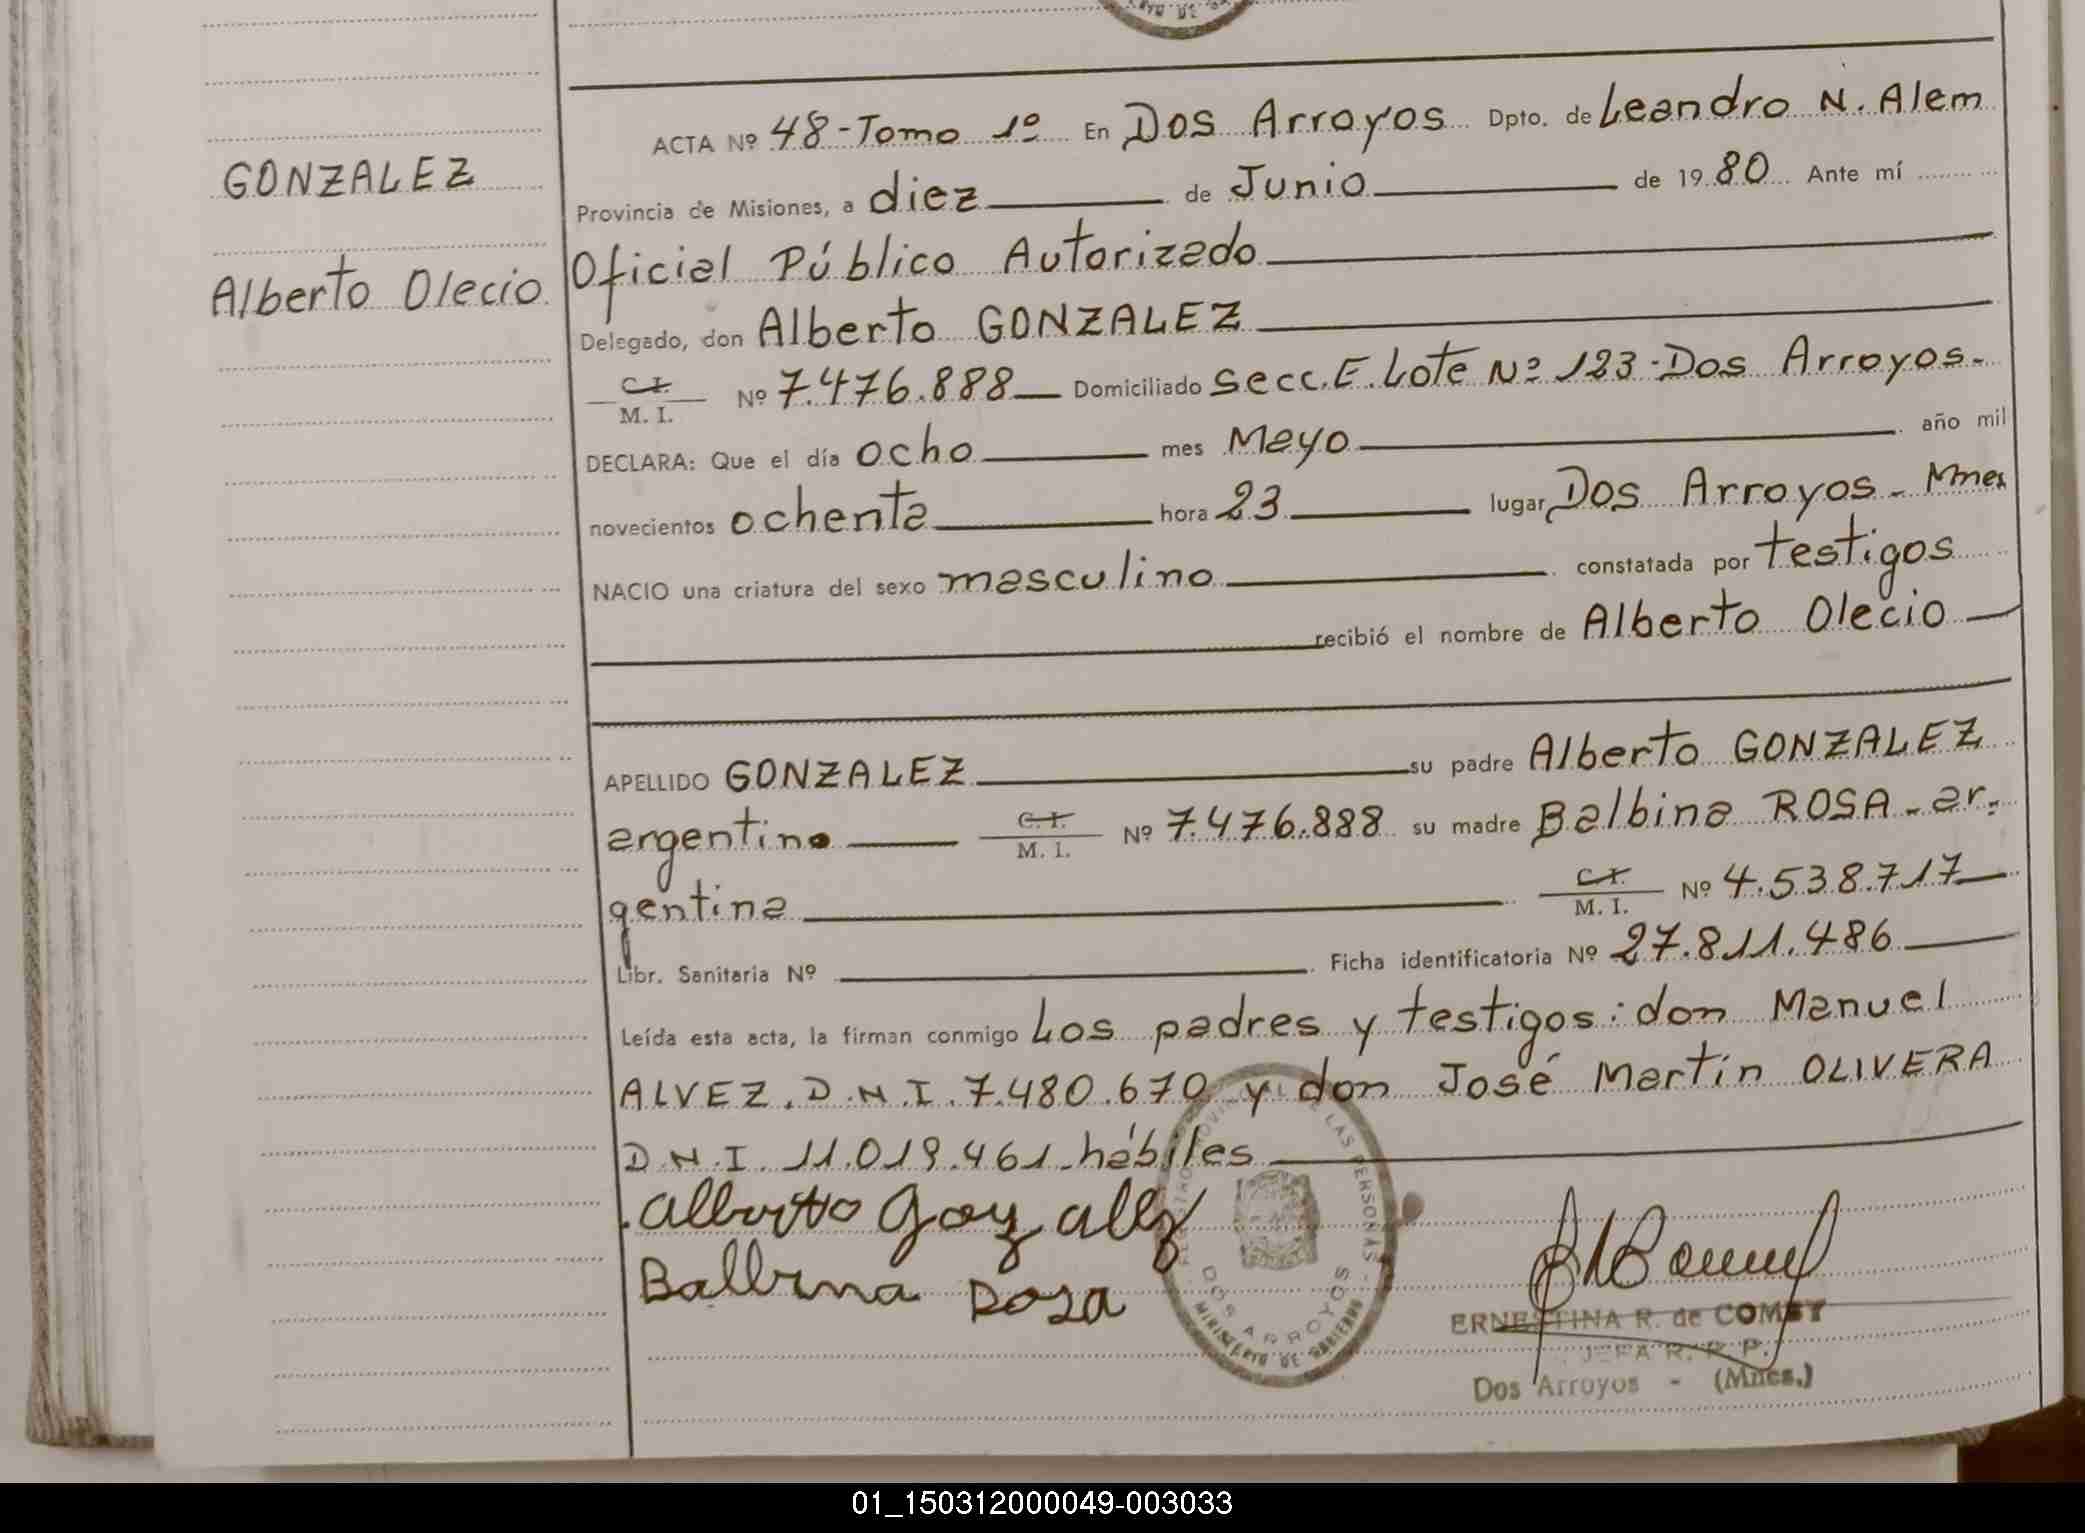 ACTA Nº 48-Tomo 1º En Dos Arroyos Dpto. de Leandro N. Alem
GONZALEZ
Provincia de Misiones, a diez de Junio de 1980 Ante mí
Alberto Olecio
Oficial Público Autorizado
Delegado, don Alberto GONZALEZ
C.I.
M. I. Nº 7.476.888 Domiciliado Secc.E.Lote Nº 123-Dos Arroyos-
DECLARA: Que el día ocho mes Mayo año mil
novecientos ochenta hora 23 lugar Dos Arroyos- Mnes
NACIO una criatura del sexo masculino constatada por testigos
recibió el nombre de Alberto Olecio
APELLIDO GONZALEZ su padre Alberto GONZALEZ
argentino C.I.
M. I. Nº 7.476.888 su madre Balbina ROSA-ar-
gentina C.I.
M. I. Nº 4.538.717
Libr. Sanitaria Nº Ficha identificatoria Nº 27.811.486
Leída esta acta, la firman conmigo Los padres y testigos: don Manuel
ALVEZ. D.N.I. 7.480.670 y don José Martín OLIVERA
D.N.I. 11.019.461-hábiles
Alberto Gonzalez
Balbina Rosa
REGISTRO PROVINCIAL DE LAS PERSONAS
DOS ARROYOS
MINISTERIO DE GOBIERNO
ERNESTINA R. de COMBY
JEFA R. P. P.
Dos Arroyos - (Mnes.)
01_150312000049-003033